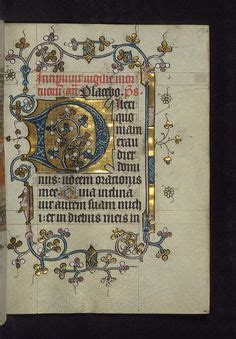 Incipiunt vigilie mor
tuorum. an̄. Placebo. Ps.
Dilexi
quo
niam
exau
diet
domi
nus: vocem orationis
mee. Quia inclina
uit aurem suam michi
: et in diebus meis in